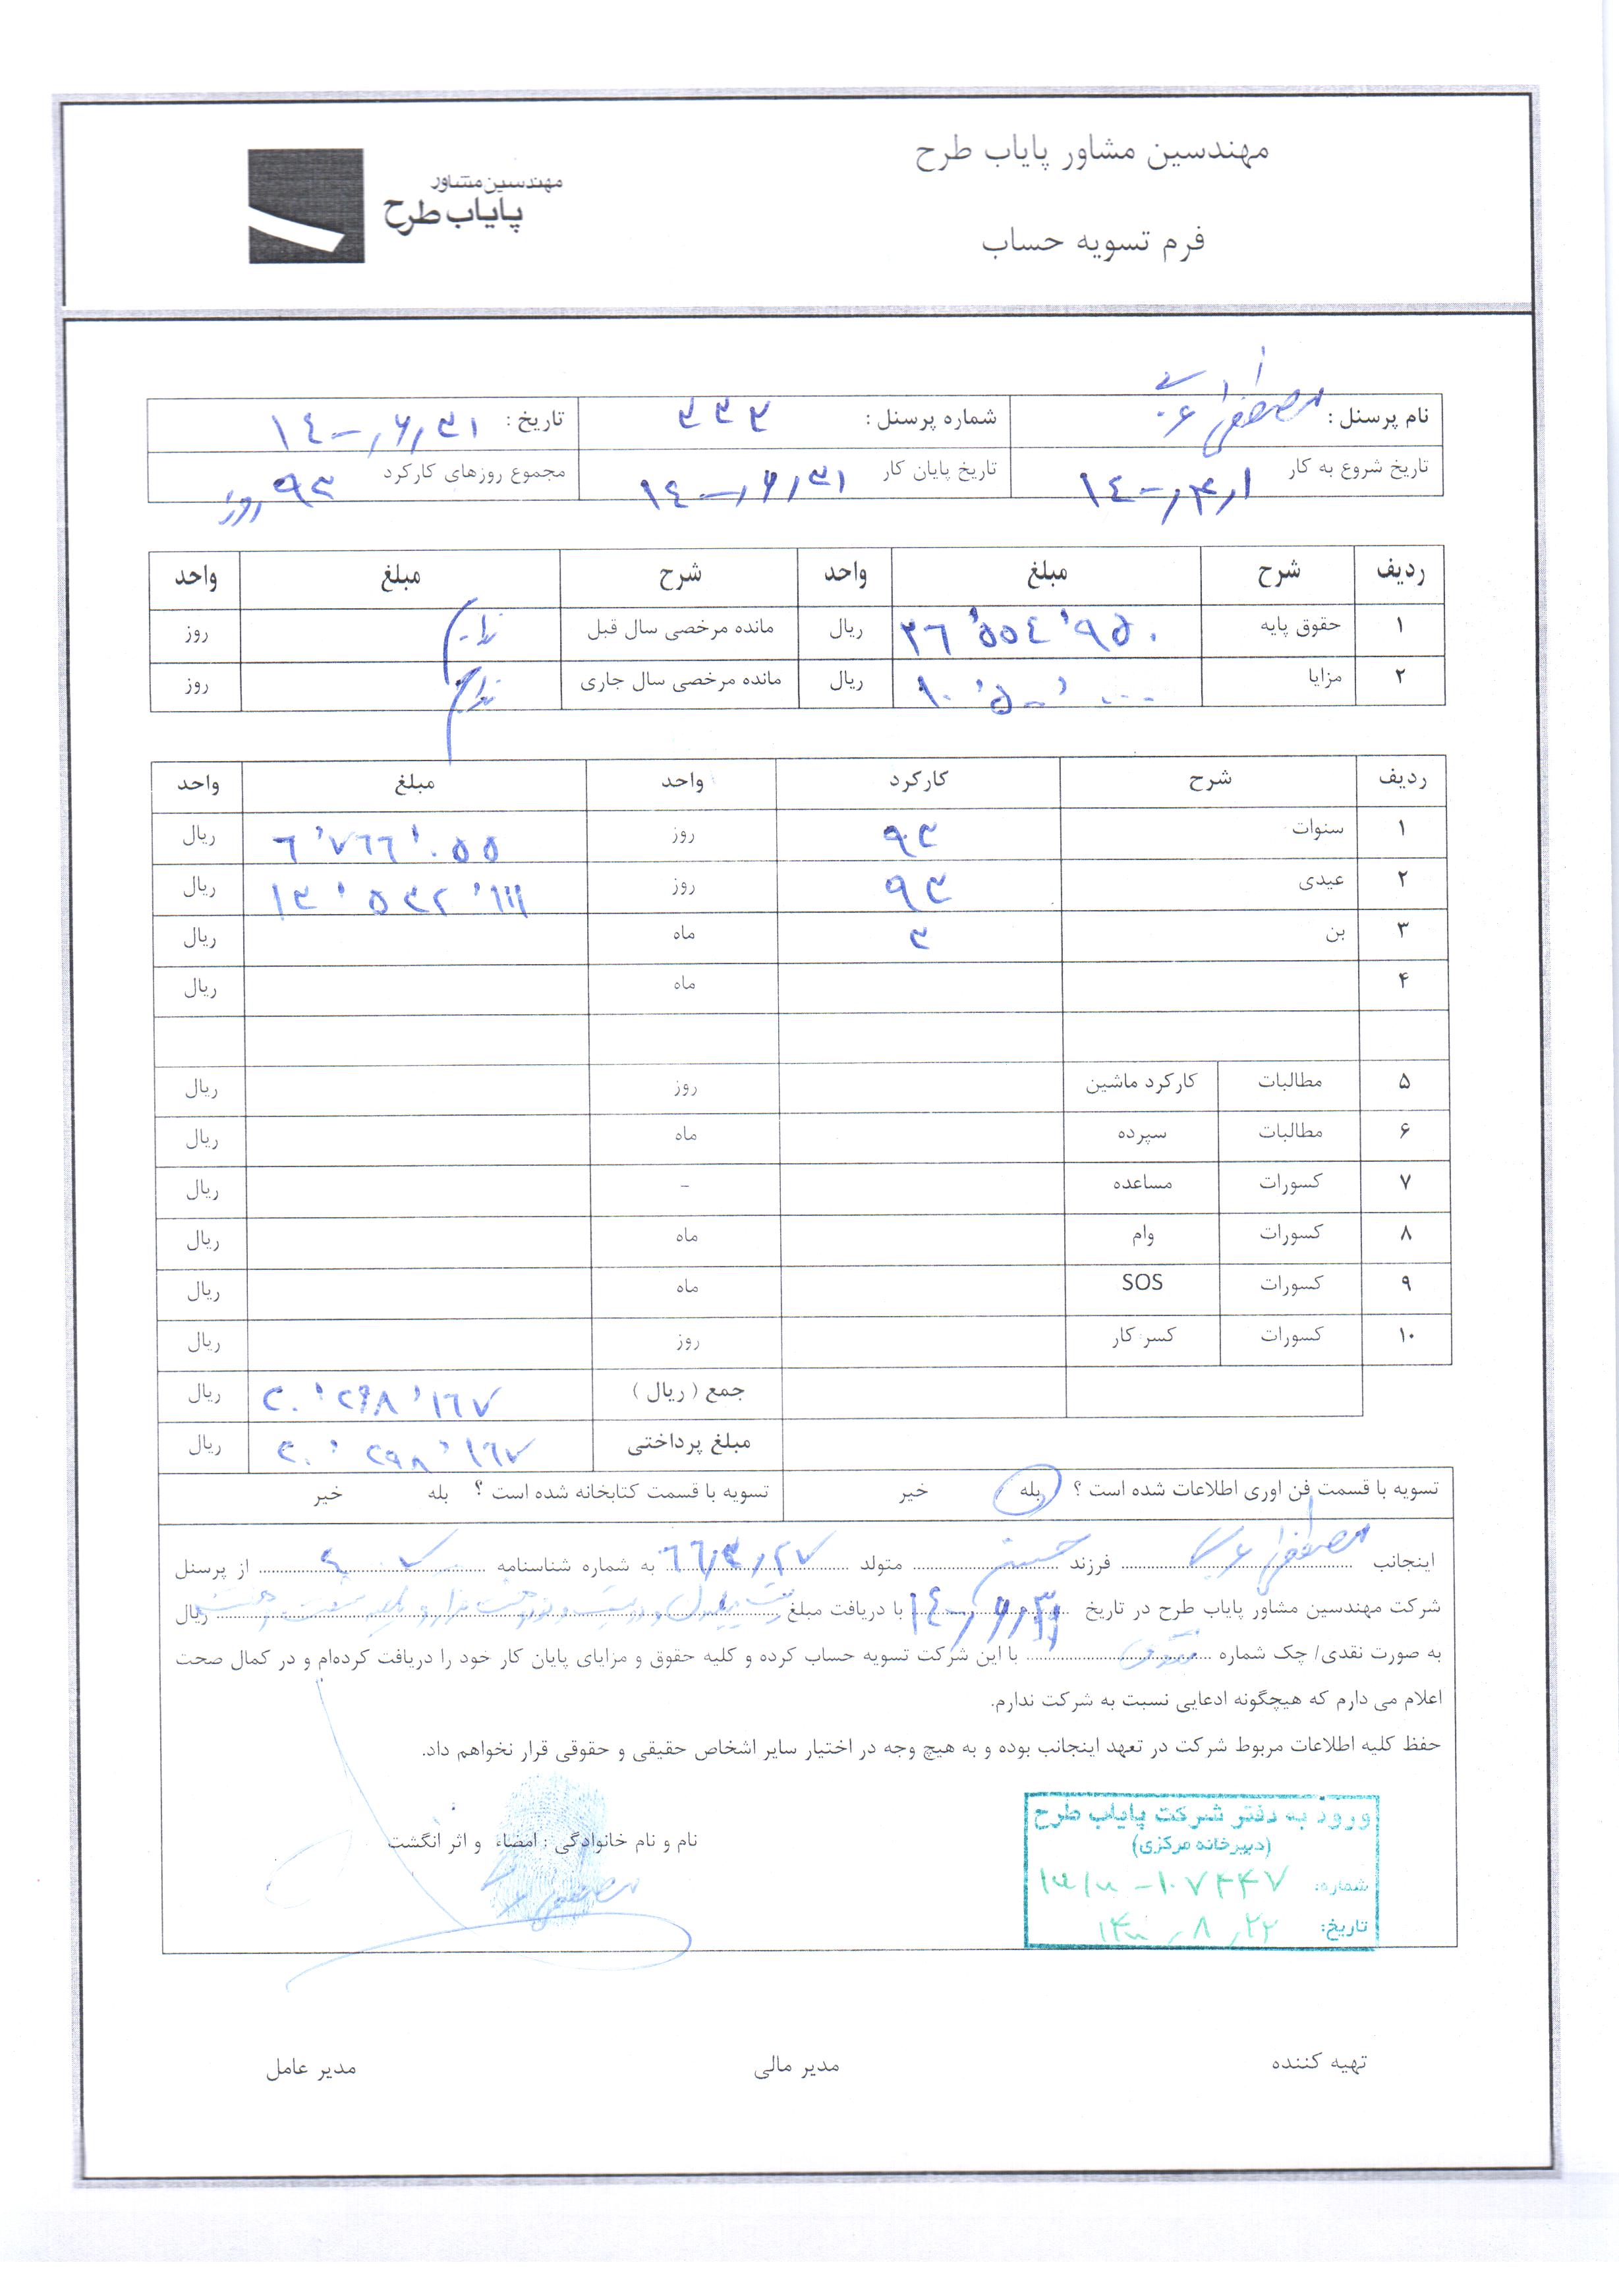 مهندسین مشاور پایاب طرح
مهندسین مشاور
پایاب طرح
فرم تسویه حساب
نام پرسنل : مصطفی شماره پرسنل : ۳۳۳ تاریخ : ۱۴۰۰/۶/۳۱
تاریخ شروع به کار ۱۴۰۰/۳/۱ تاریخ پایان کار ۱۴۰۰/۶/۳۱ مجموع روزهای کارکرد ۹۳ روز
ردیف شرح مبلغ واحد شرح مبلغ واحد
۱ حقوق پایه ۲۶٬۵۵۴٬۹۵۰ ریال مانده مرخصی سال قبل ندارد روز
۲ مزایا ۱۰٬۵۰۰٬۰۰۰ ریال مانده مرخصی سال جاری ندارد روز
ردیف شرح کارکرد واحد مبلغ واحد
۱ سنوات ۹۳ روز ۶٬۷۶۶٬۰۵۵ ریال
۲ عیدی ۹۳ روز ۱۳٬۵۳۲٬۱۱۱ ریال
۳ بن ۳ ماه ریال
۴ ماه ریال
۵ مطالبات کارکرد ماشین روز ریال
۶ مطالبات سپرده ماه ریال
۷ کسورات مساعده - ریال
۸ کسورات وام ماه ریال
۹ کسورات SOS ماه ریال
۱۰ کسورات کسر کار روز ریال
جمع ( ریال ) ۲۰٬۲۹۸٬۱۶۷ ریال
مبلغ پرداختی ۲۰٬۲۹۸٬۱۶۷ ریال
تسویه با قسمت فن اوری اطلاعات شده است ؟ بله خیر تسویه با قسمت کتابخانه شده است ؟ بله خیر
اینجانب مصطفی فرزند متولد ۶۶/۳/۲۷ به شماره شناسنامه از پرسنل
شرکت مهندسین مشاور پایاب طرح در تاریخ ۱۴۰۰/۶/۳۱ با دریافت مبلغ ریال
به صورت نقدی/ چک شماره نقدی با این شرکت تسویه حساب کرده و کلیه حقوق و مزایای پایان کار خود را دریافت کرده‌ام و در کمال صحت
اعلام می دارم که هیچگونه ادعایی نسبت به شرکت ندارم.
حفظ کلیه اطلاعات مربوط شرکت در تعهد اینجانب بوده و به هیچ وجه در اختیار سایر اشخاص حقیقی و حقوقی قرار نخواهم داد.
ورود به دفتر شرکت پایاب طرح
(دبیرخانه مرکزی)
نام و نام خانوادگی : امضاء و اثر انگشت
شماره:
تاریخ: ۱۴۰۰/۸/۲۲
تهیه کننده مدیر مالی مدیر عامل